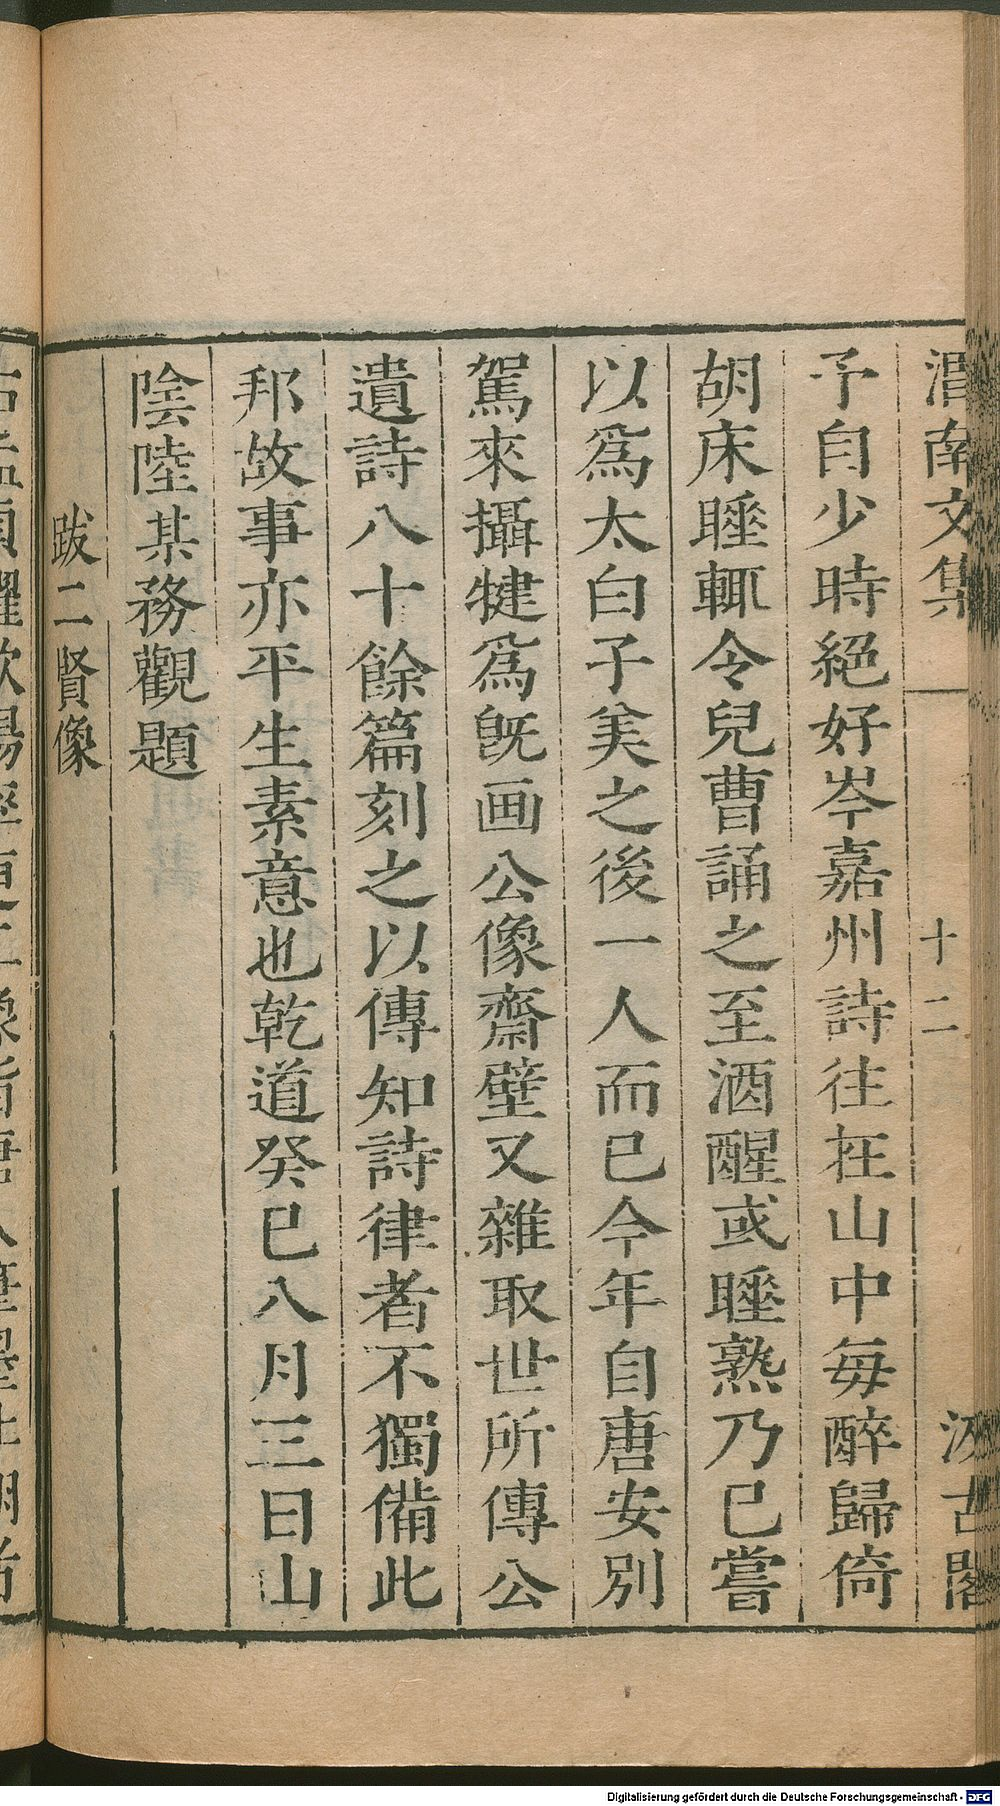 渭南文集 十二 汲古閣
予自少時絕好岑嘉州詩往在山中每醉歸倚
胡床睡輒令兒曹誦之至酒醒或睡熟乃已嘗
以爲太白子美之後一人而已今年自唐安別
駕來攝犍爲旣画公像齋壁又雜取世所傳公
遺詩八十餘篇刻之以傳知詩律者不獨備此
邦故事亦平生素意也乾道癸巳八月三日山
陰陸某務觀題
跋二賢像
Digitalisierung gefördert durch die Deutsche Forschungsgemeinschaft - DFG